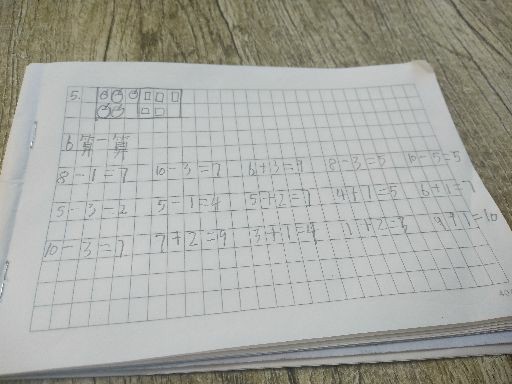 5.
6 算一算
8-1=7 10-3=7 6+3=9 8-3=5 10-5=5
5-3=2 5-1=4 5+2=7 4+1=5 6+1=7
10-3=7 7+2=9 3+1=4 1+2=3 9+1=10